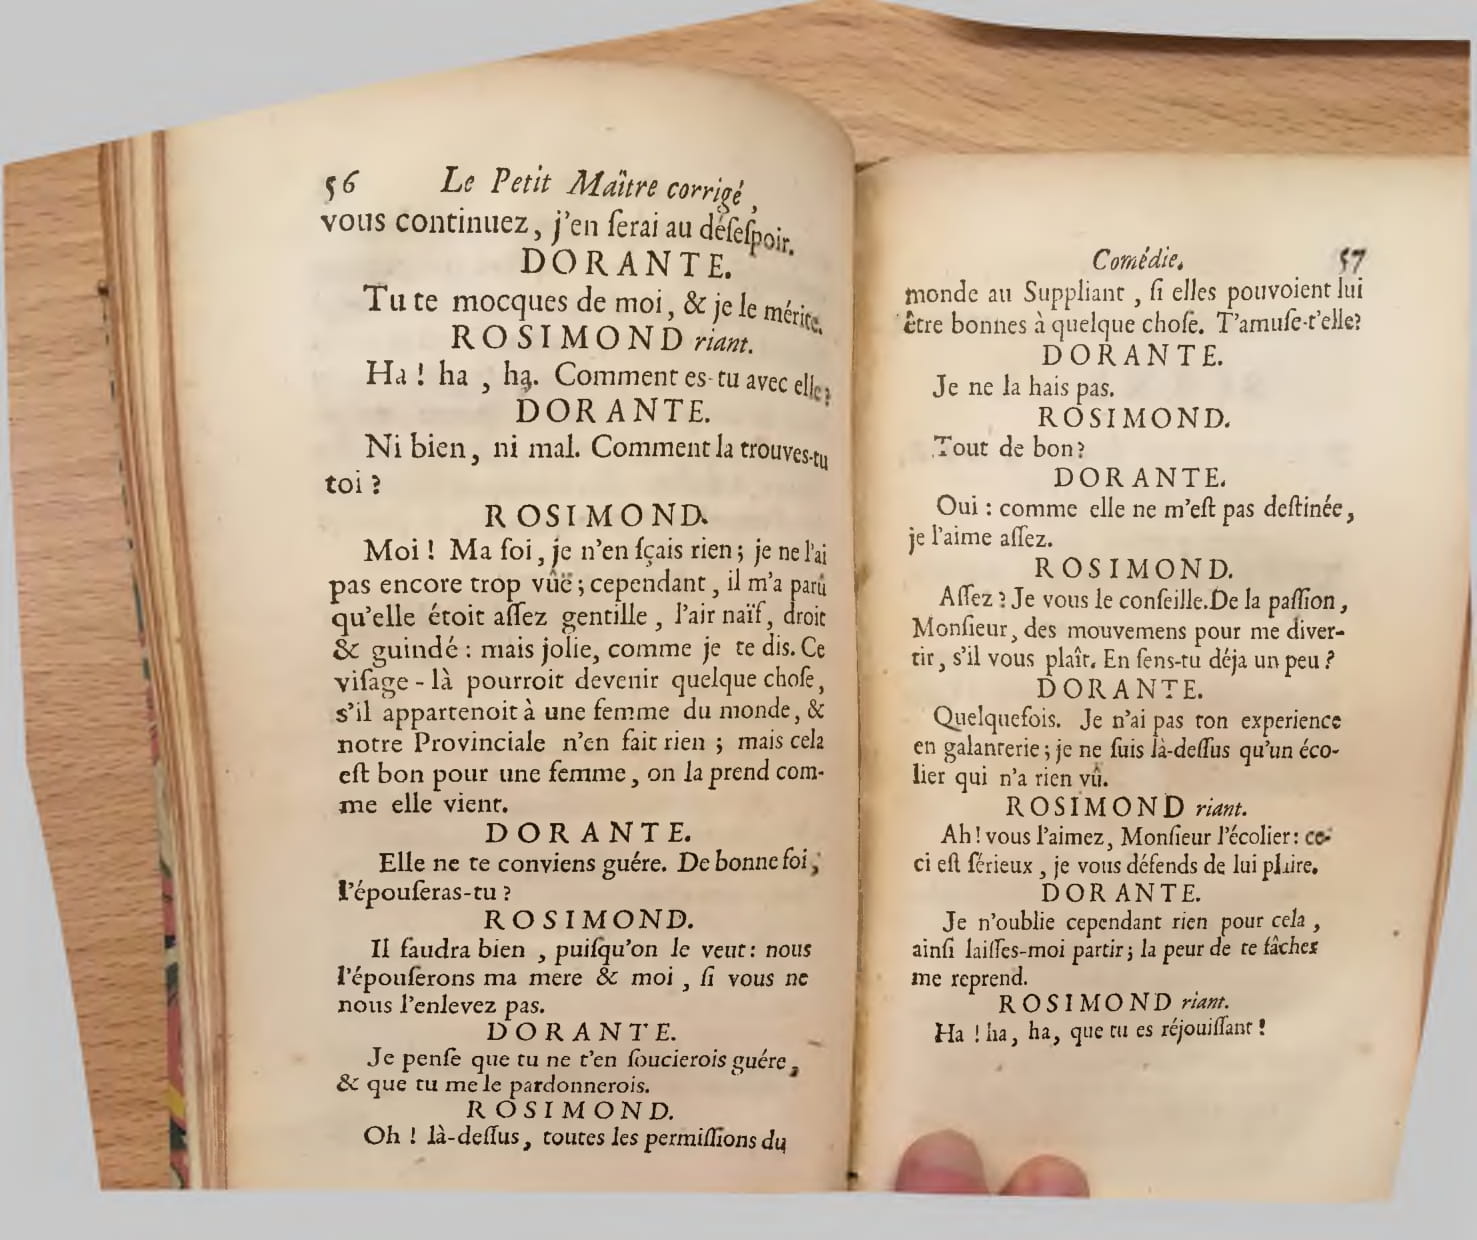 56 Le Petit Maître corrigé,
vous continuez, j'en ſerai au déſeſpoir.
DORANTE.
Tu te mocques de moi, & je le mérite.
ROSIMOND riant.
Ha ! ha , ha. Comment es-tu avec elle ?
DORANTE.
Ni bien, ni mal. Comment la trouves-tu
toi ?
ROSIMOND.
Moi ! Ma foi, je n'en ſçais rien ; je ne l'ai
pas encore trop vûë ; cependant, il m'a parû
qu'elle étoit aſſez gentille , l'air naïf, droit
& guindé : mais jolie, comme je te dis. Ce
viſage-là pourroit devenir quelque choſe,
s'il appartenoit à une femme du monde, &
notre Provinciale n'en fait rien ; mais cela
eſt bon pour une femme, on la prend com-
me elle vient.
DORANTE.
Elle ne te conviens guére. De bonne foi,
l'épouſeras-tu ?
ROSIMOND.
Il faudra bien , puiſqu'on le veut : nous
l'épouſerons ma mere & moi , ſi vous ne
nous l'enlevez pas.
DORANTE.
Je penſe que tu ne t'en ſoucierois guére,
& que tu me le pardonnerois.
ROSIMOND.
Oh ! là-deſſus, toutes les permiſſions du
Comédie. 57
monde au Suppliant , ſi elles pouvoient lui
être bonnes à quelque choſe. T'amuſe-t'elle?
DORANTE.
Je ne la hais pas.
ROSIMOND.
Tout de bon?
DORANTE.
Oui : comme elle ne m'eſt pas deſtinée,
je l'aime aſſez.
ROSIMOND.
Aſſez ? Je vous le conſeille. De la paſſion,
Monſieur, des mouvemens pour me diver-
tir, s'il vous plaît. En ſens-tu déja un peu ?
DORANTE.
Quelquefois. Je n'ai pas ton experience
en galanterie ; je ne ſuis là-deſſus qu'un éco-
lier qui n'a rien vû.
ROSIMOND riant.
Ah ! vous l'aimez, Monſieur l'écolier : ce-
ci eſt ſérieux , je vous défends de lui plaire.
DORANTE.
Je n'oublie cependant rien pour cela ,
ainſi laiſſes-moi partir ; la peur de te fâcher
me reprend.
ROSIMOND riant.
Ha ! ha, ha, que tu es réjouiſſant !